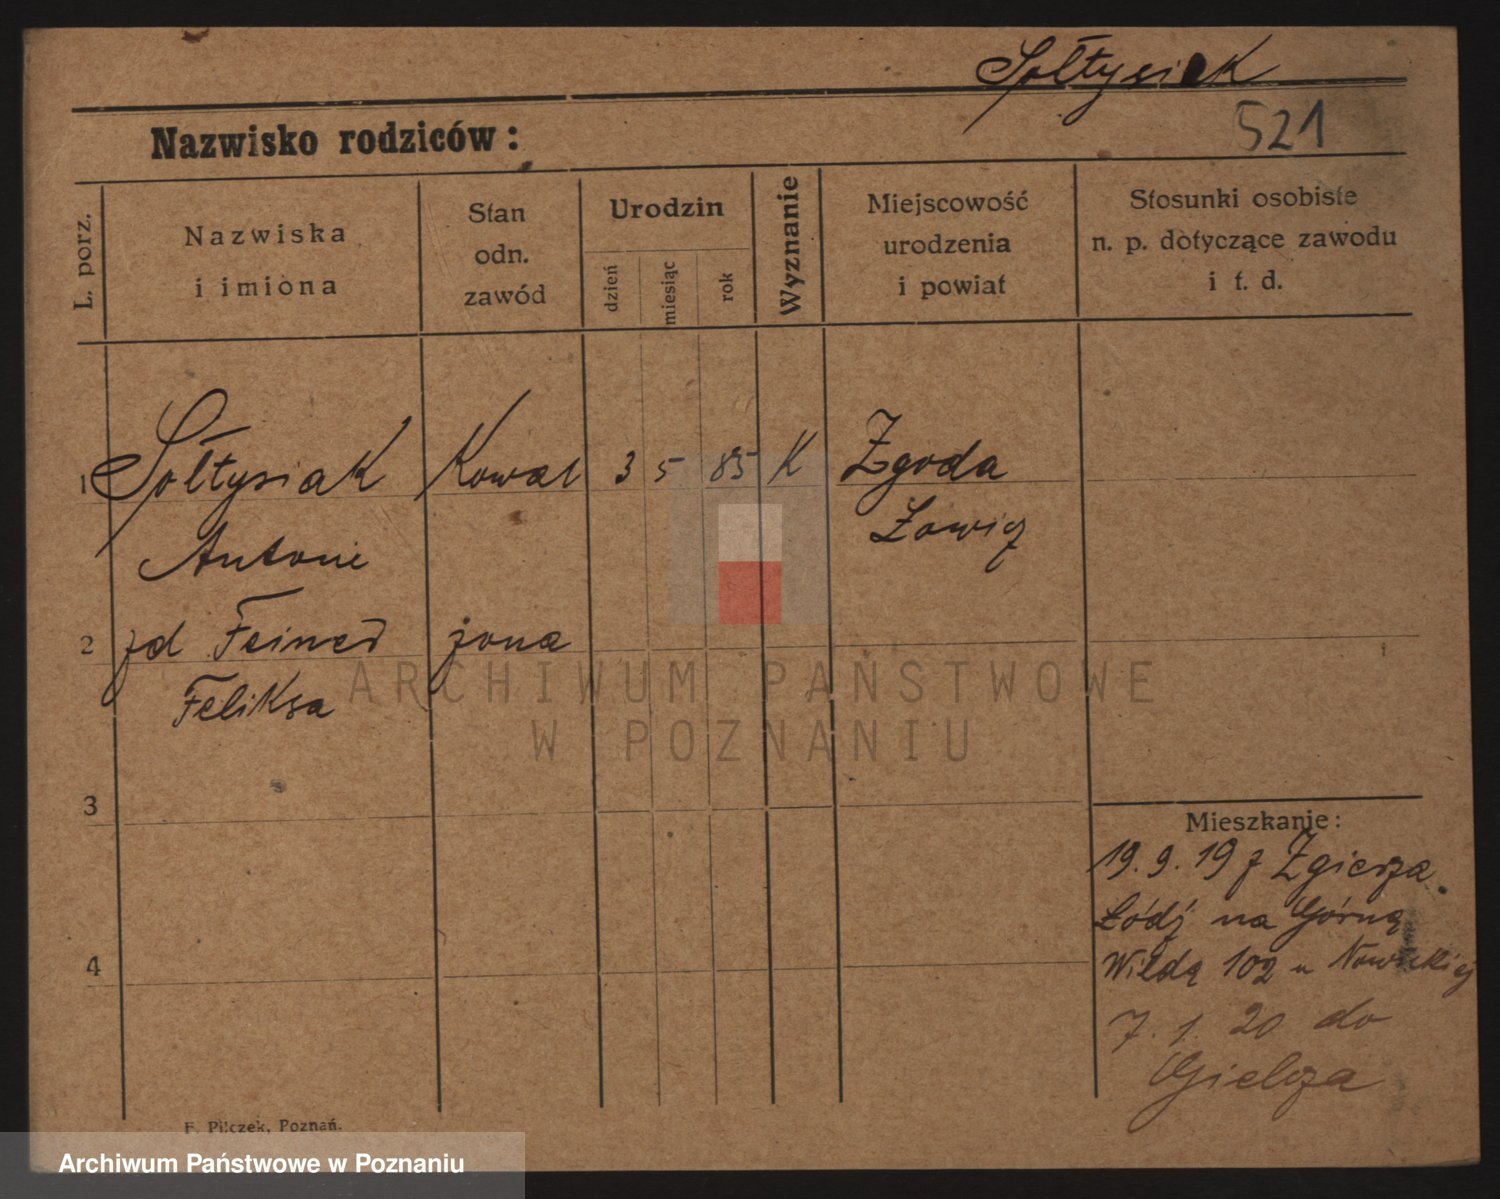 Sołtysiak
521
Nazwisko rodziców:
L. porz.
Nazwiska
i imiona
Stan
odn.
zawód
Urodzin
dzień
miesiąc
rok
Wyznanie
Miejscowość
urodzenia
i powiat
Stosunki osobiste
n. p. dotyczące zawodu
i t. d.
1 Sołtysiak Kowal 3 5 85 K Zgoda
Antoni Łowicz
2 zd żona
Feliksa
ARCHIWUM PAŃSTWOWE
W POZNANIU
3
Mieszkanie:
19. 9. 19 z Zgierza
Łódź na Górną
4 Wildą 102 u Nowickiej
7. 1. 20 do
F. Pilczek, Poznań.
Archiwum Państwowe w Poznaniu